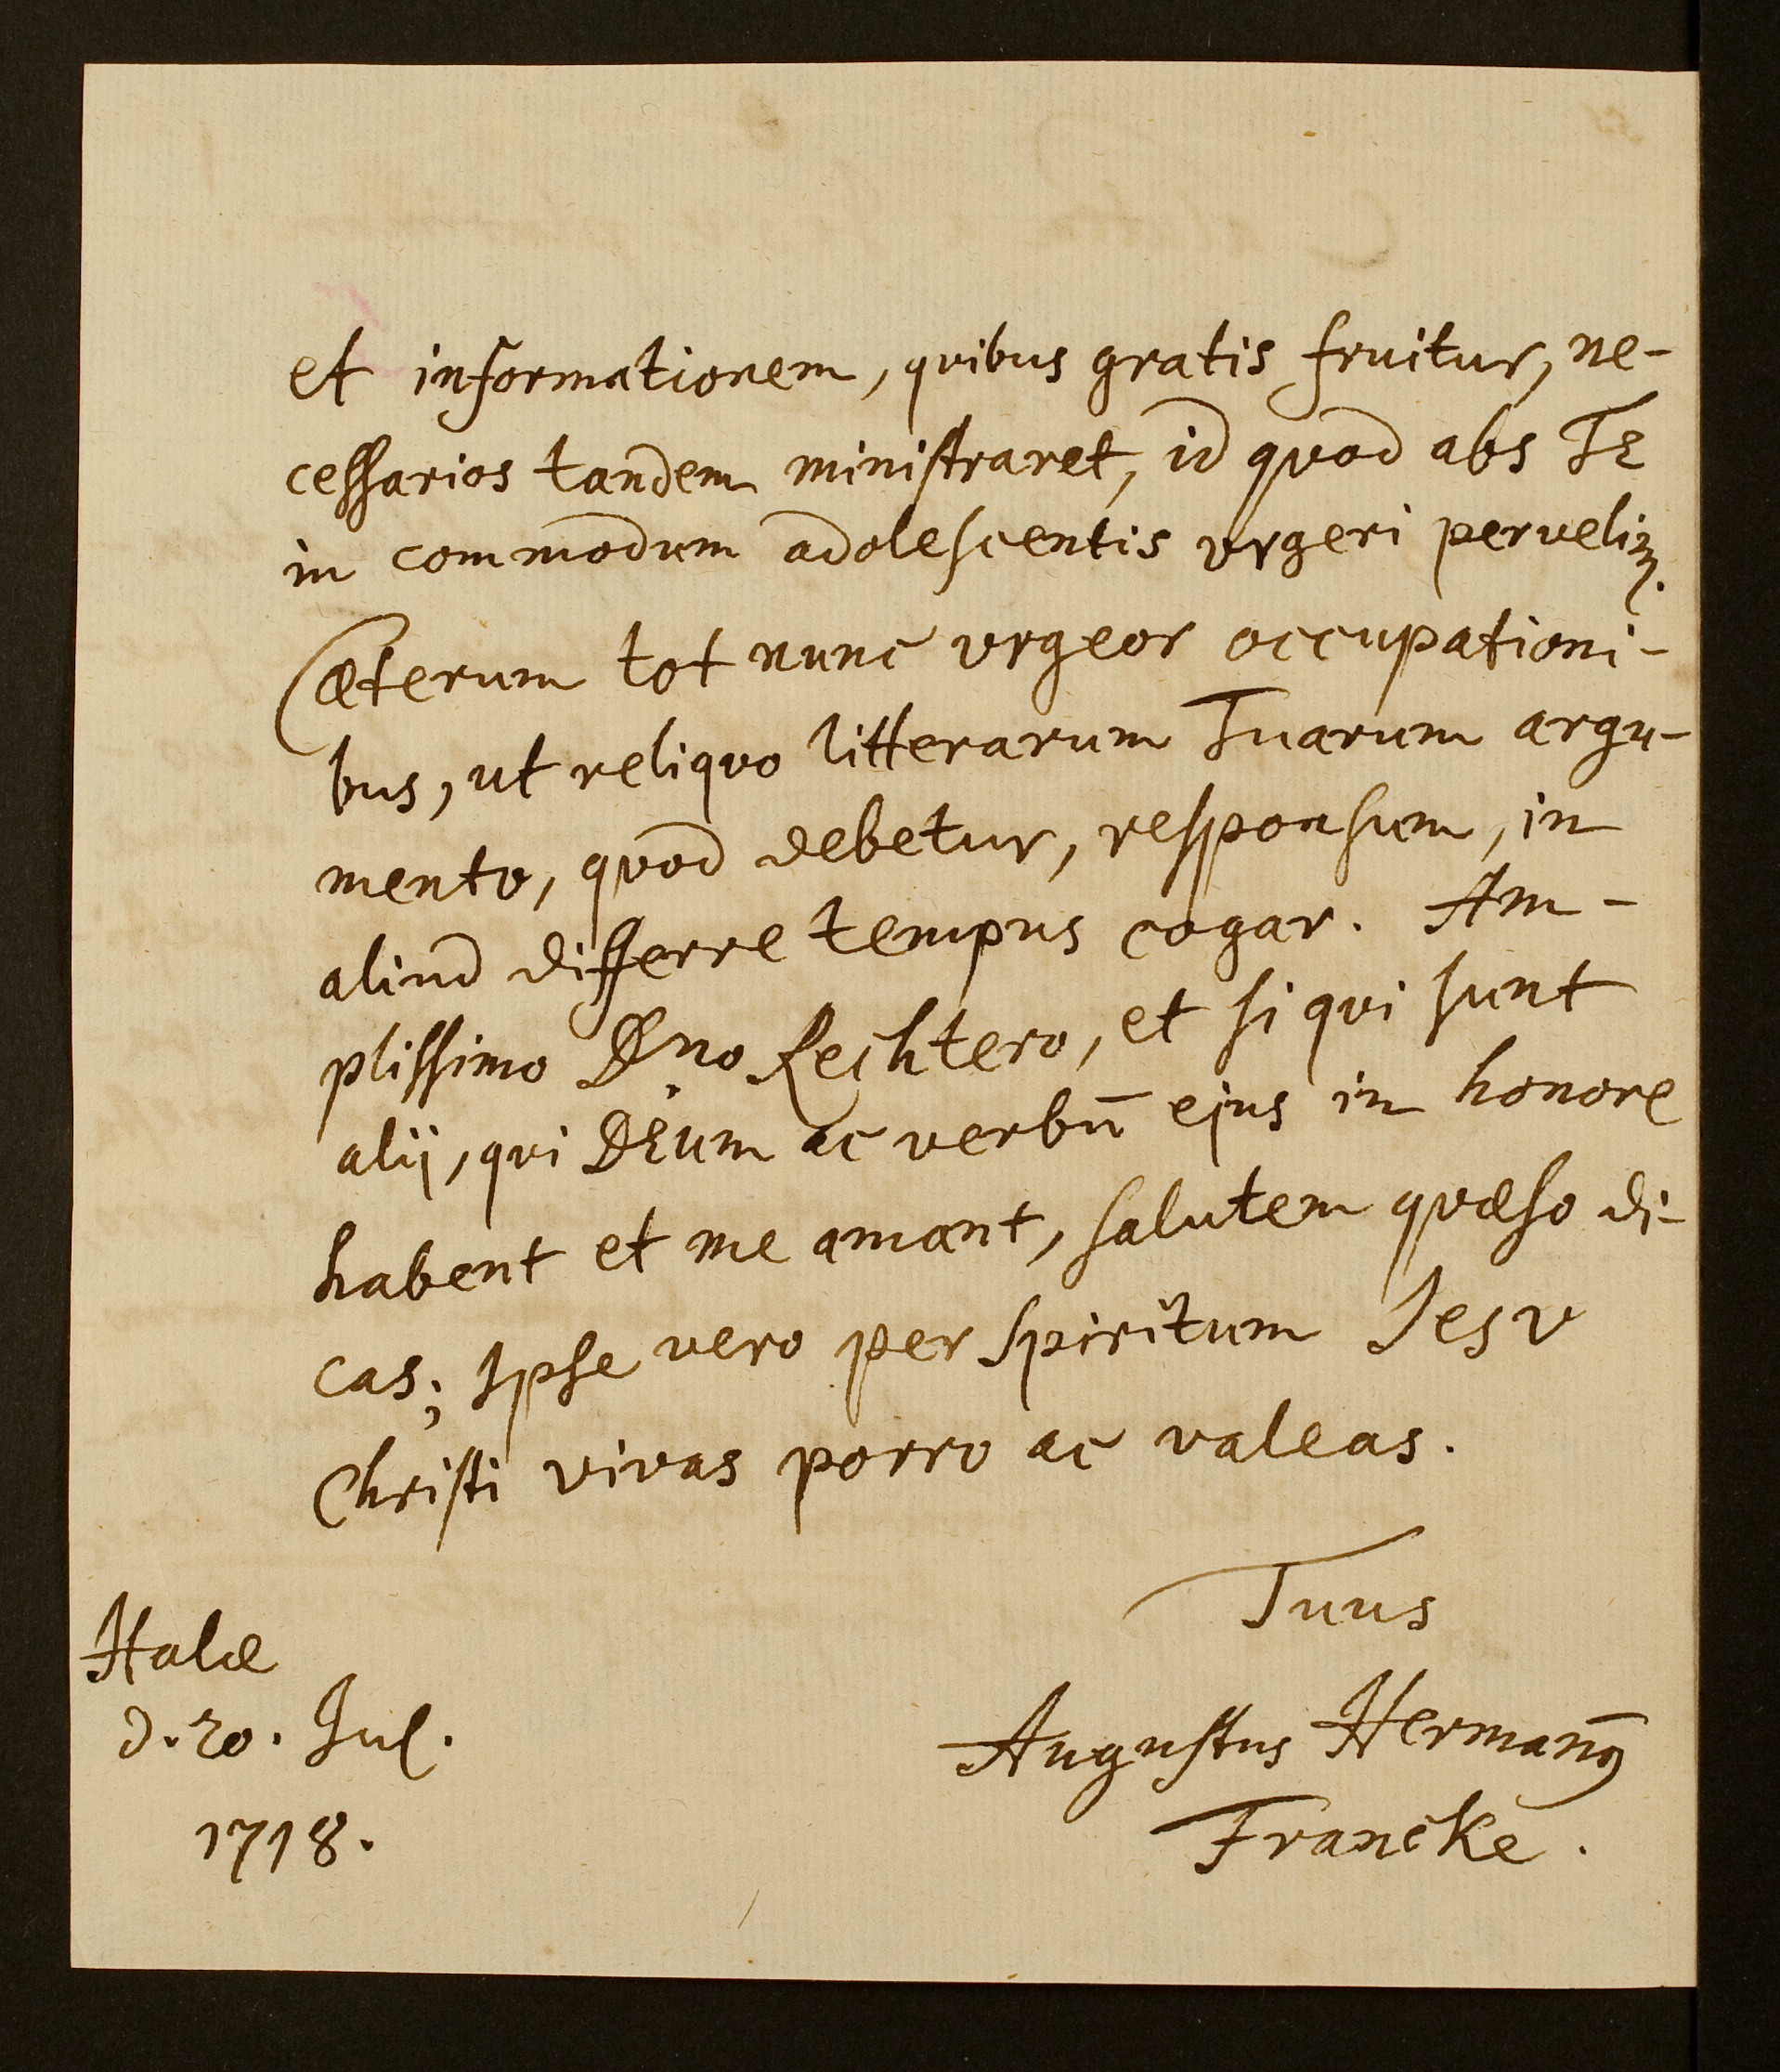 et informationem, quibus gratis fruitur, ne-
cessarios tandem ministraret, id quod abs TE
in commodum adolescentis vrgeri pervelim.
Cæterum tot nunc vrgeor occupationi-
bus, ut reliquo litterarum Tuarum argu-
mento, quod debetur, responsum, in
aliud differre tempus cogar. Am-
plissimo Dno Rechtero, et si qui sunt
alij, qui DEum ac verbū ejus in honore
habent et me amant, salutem quæso di-
cas; Ipse vero per Spiritum Jesv
Christi vivas porro ac valeas.
Tuus
Halæ
d. 20. Jul.
1718.
Augustus Hermanꝰ
Francke.